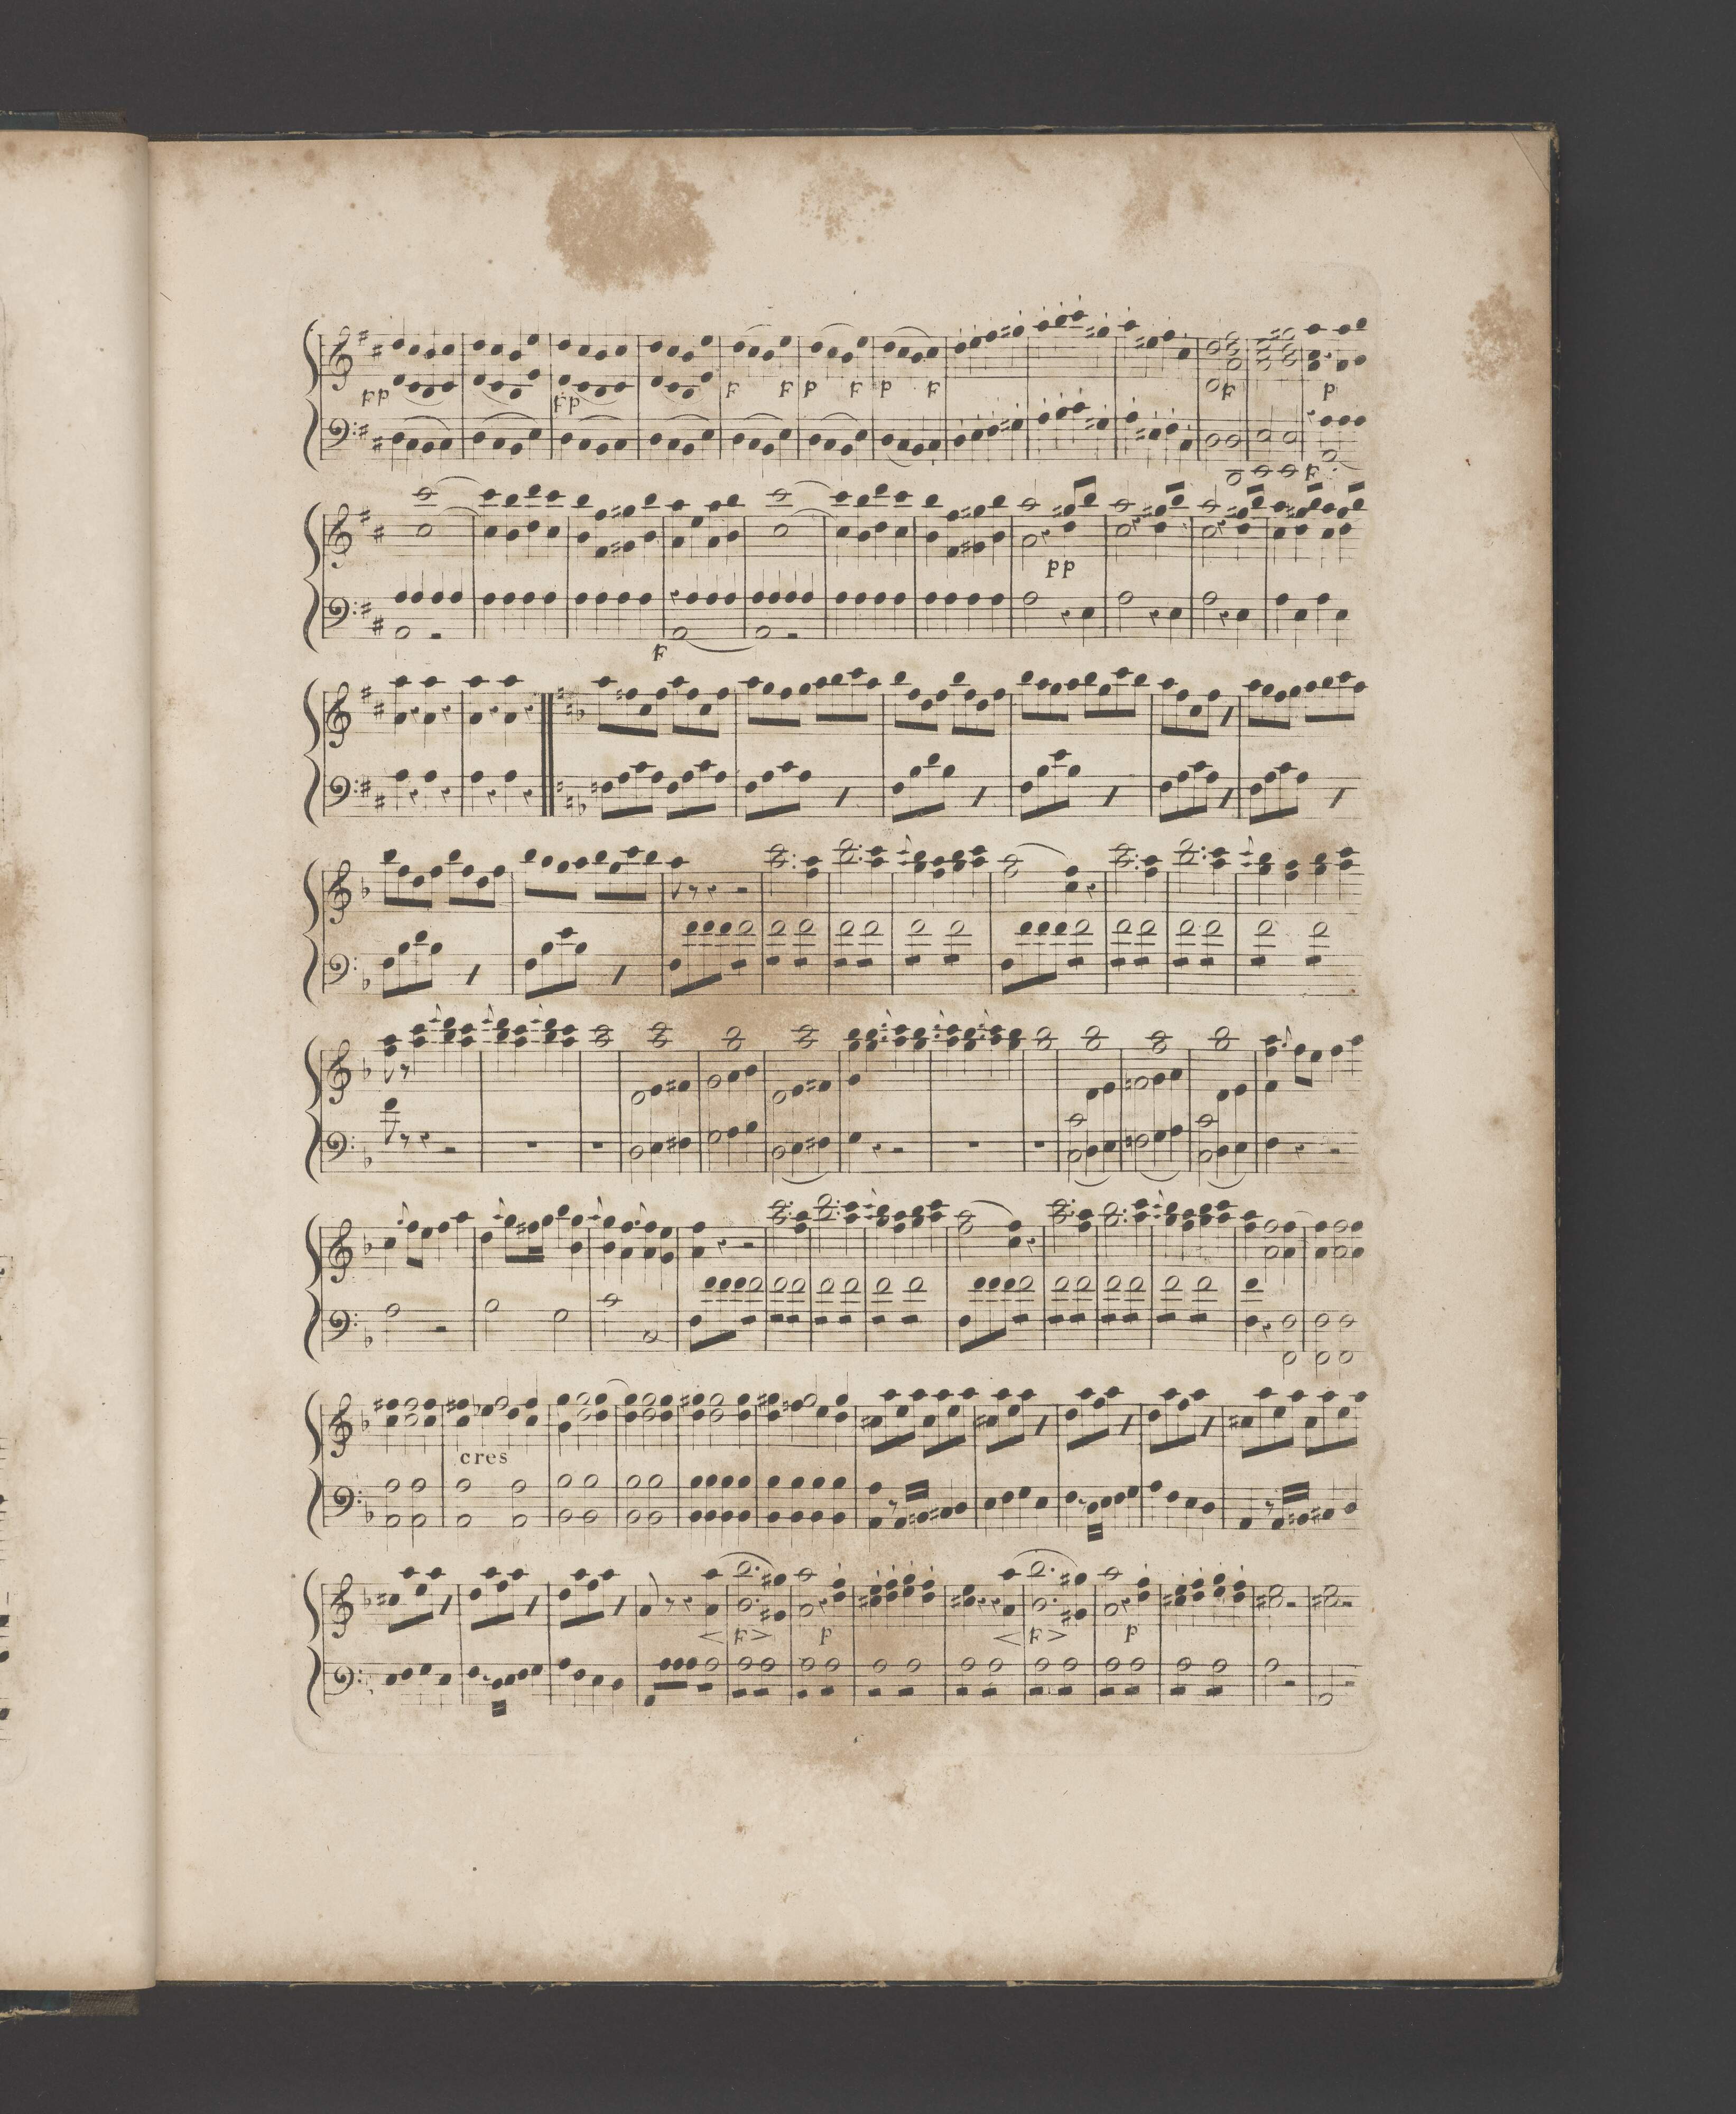 pp fp F F p F p F F p
F
pp
F
cres
F p F p